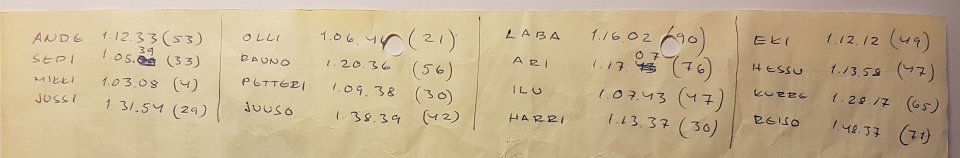 ANDE 1.12.33 (53)
SEPI 1.05.39 (33)
MIKKI 1.03.08 (4)
JUSSI 1.31.54 (29)
OLLI (21)
RAUNO 1.20.36 (56)
PETTERI 1.09.38 (30)
JUUSO 1.38.39 (42)
LABA 1.16.02 (90)
ARI 1.17.07 (76)
ILU 1.07.43 (47)
HARRI 1.13.37 (30)
EKI 1.12.12 (49)
HESSU 1.13.58 (47)
KURRE 1.28.17 (65)
REIJO 1.48.37 (71)